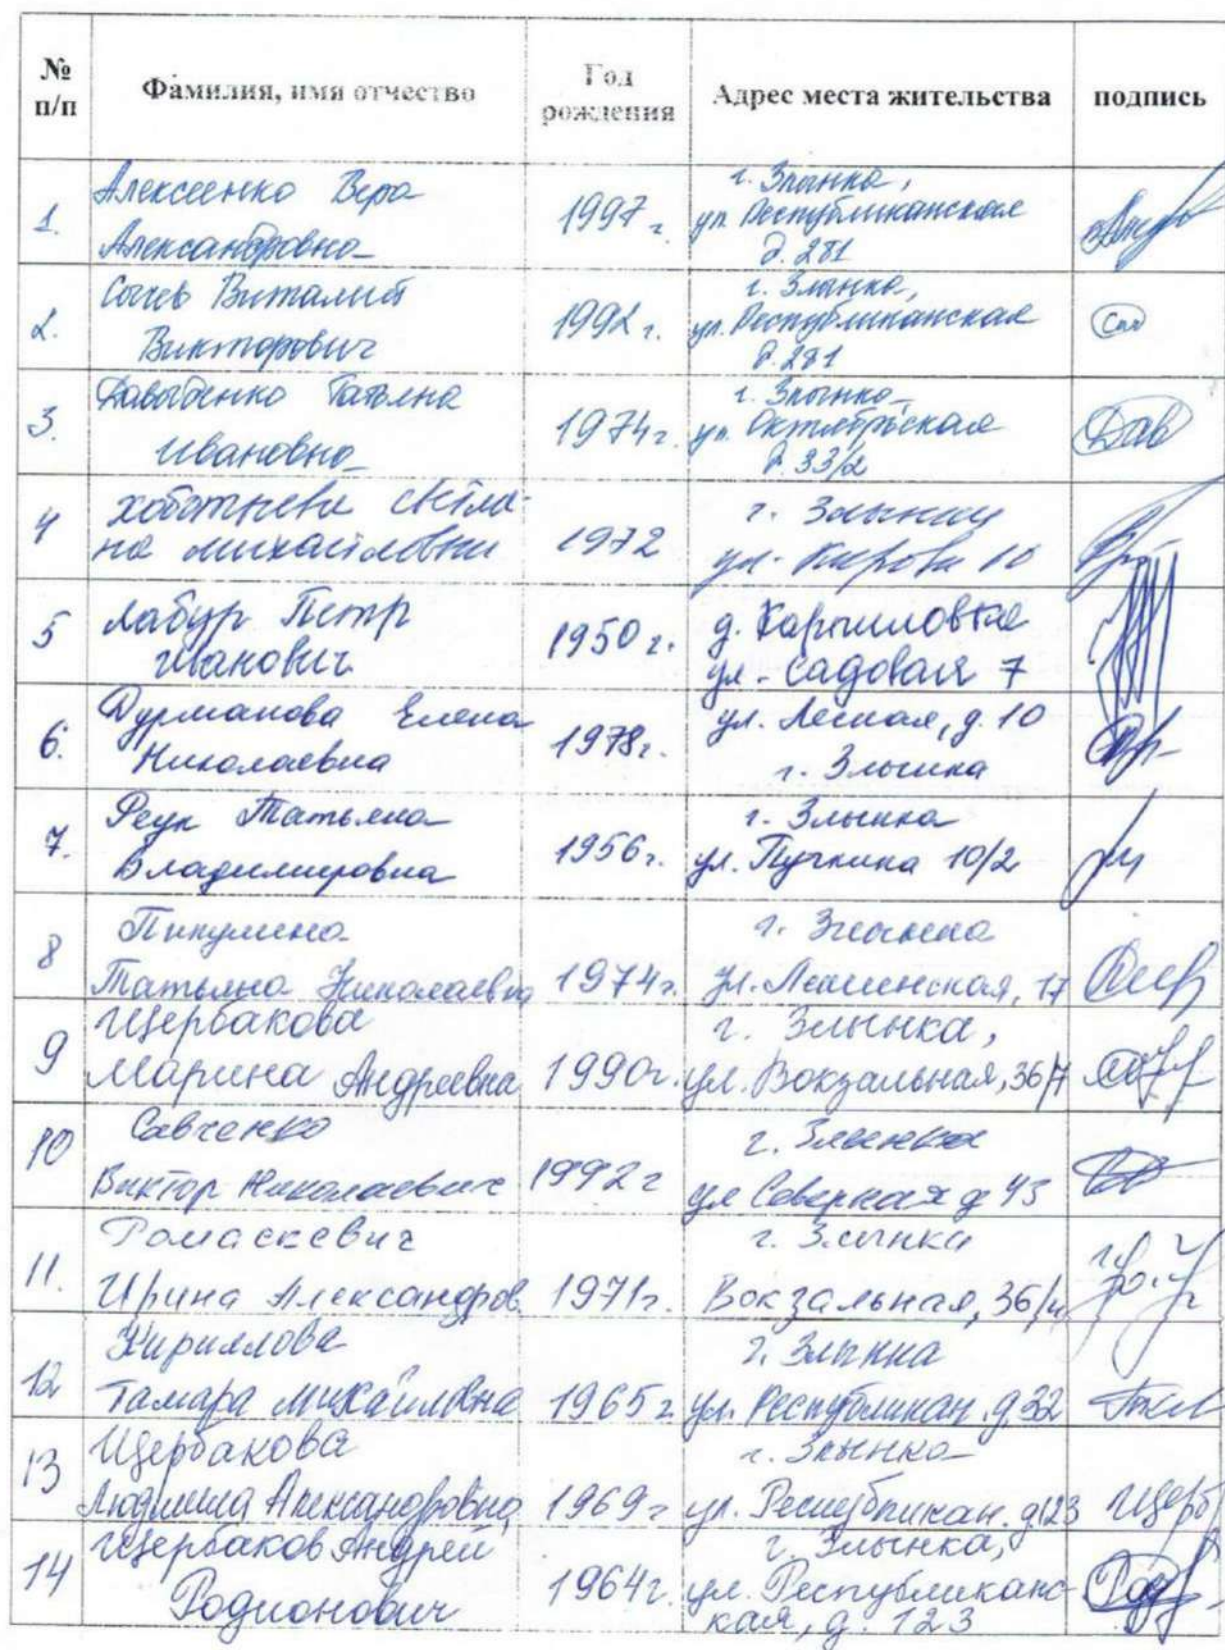 № п/п Фамилия, имя отчество Год рождения Адрес места жительства подпись
1. Алексеенко Вера Александровна 1997 г. г. Злынка, ул. Республиканская д. 281
2. Сычев Виталий Викторович 1992 г. г. Злынка, ул. Республиканская д. 281
3. Давыденко Татьяна Ивановна 1974 г. г. Злынка, ул. Октябрьская д. 33/2 Дав
4 Светлана Михайловна 1972 г. Злынка ул. Кирова 10
5 Лабур Петр Иванович 1950 г. д. Карпиловка ул. Садовая 7
6. Дурманова Елена Николаевна 1978 г. ул. Лесная, д. 10 г. Злынка
7. Реук Татьяна Владимировна 1956 г. г. Злынка ул. 10/2
8 Пикулина Татьяна Николаевна 1974 г. г. Злынка ул. 17
9 Щербакова Марина Андреевна 1990 г. г. Злынка, ул. Вокзальная, 36/7
10 Савченко Виктор Николаевич 1992 г г. Злынка ул Северная д 43
11. Ромаскевич Ирина Александров. 1971 г. г. Злынка Вокзальная, 36/4
12 Кириллова Тамара Михайловна 1965 г г. Злынка ул. Республикан. д. 32
13 Щербакова Людмила Александровна 1969 г г. Злынка ул. Республикан. д 123 Щерб
14 Щербаков Андрей Родионович 1964 г. г. Злынка, ул. Республиканская, д. 123